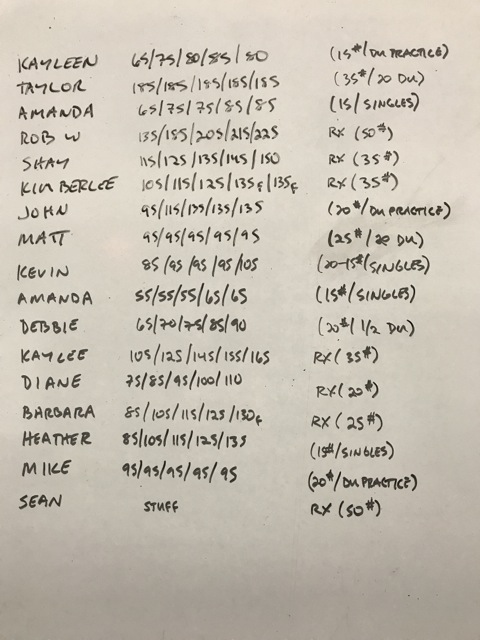 KAYLEEN 65/75/80/85/80 (15#/DU PRACTICE)
TAYLOR 185/185/185/185/185 (35#/20 DU)
AMANDA 65/75/75/85/85 (15/SINGLES)
ROB W 135/185/205/215/225 RX (50#)
SHAY 115/125/135/145/150 RX (35#)
KIMBERLEE 105/115/125/135f/135f RX (35#)
JOHN 95/115/135/135/135 (20#/DU PRACTICE)
MATT 95/95/95/95/95 (25#/20 DU)
KEVIN 85/95/95/95/105 (20-15#/SINGLES)
AMANDA 55/55/55/65/65 (15#/SINGLES)
DEBBIE 65/70/75/85/90 (20#/1/2 DU)
KAYLEE 105/125/145/155/165 RX (35#)
DIANE 75/85/95/100/110 RX (20#)
BARBARA 85/105/115/125/130f RX (25#)
HEATHER 85/105/115/125/135 (15#/SINGLES)
MIKE 95/95/95/95/95 (20#/DU PRACTICE)
SEAN STUFF RX (50#)